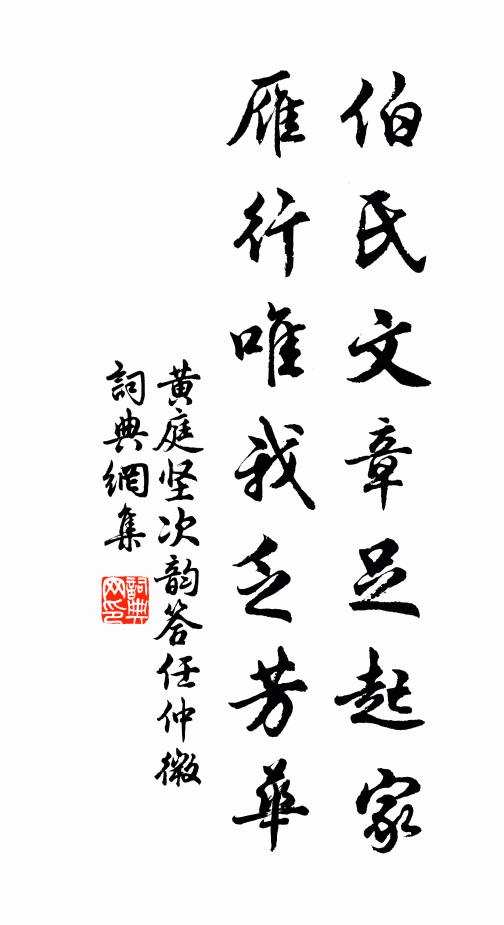 伯氏文章足起家
雁行唯我乏芳華
黄庭坚次韵答任仲微
詞典網集
詞典网印